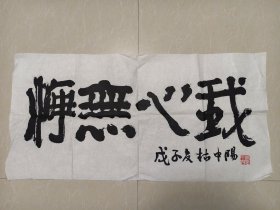 我心無悔
戊子中陽